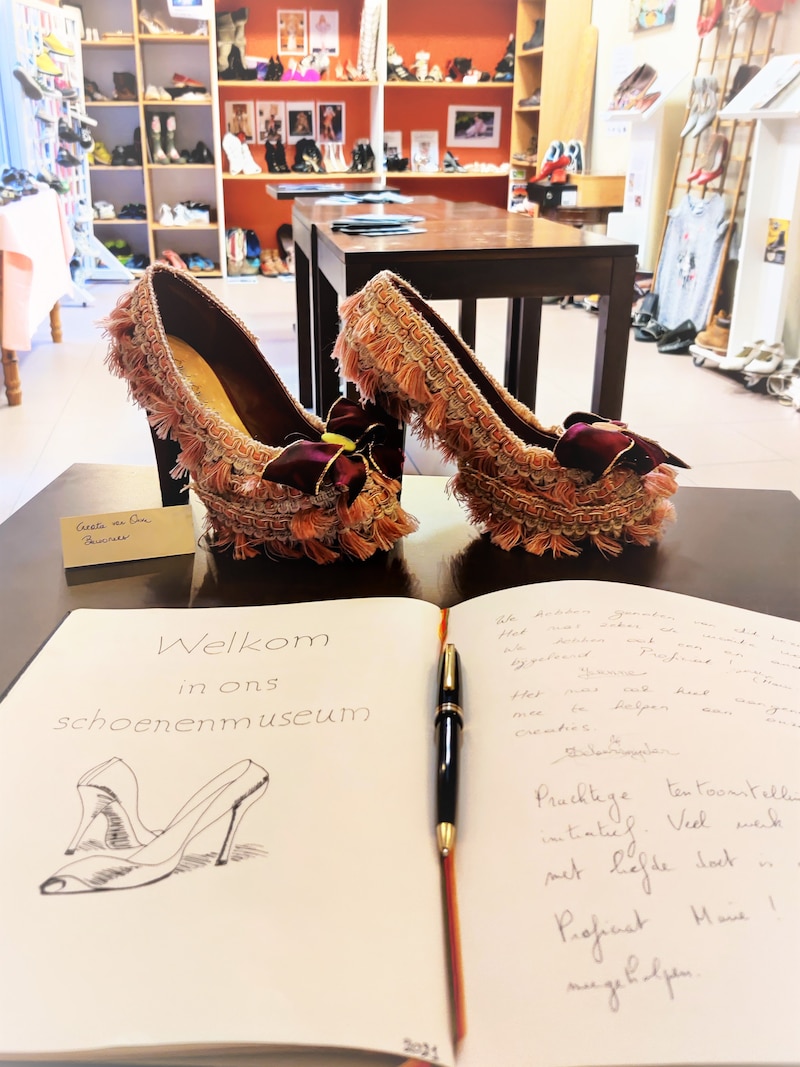 Creatie van Onze
Bewoners
Welkom
in ons
schoenenmuseum
2021
We hebben genoten van dit
Het was zeker de moeite
We hebben ook een en
bijgeleerd Proficiat!
Het was ook heel
mee te helpen aan
creaties.
Prachtige tentoonstelling
initiatief. Veel werk
met liefde doet
Proficiat Marie!
meegeholpen.